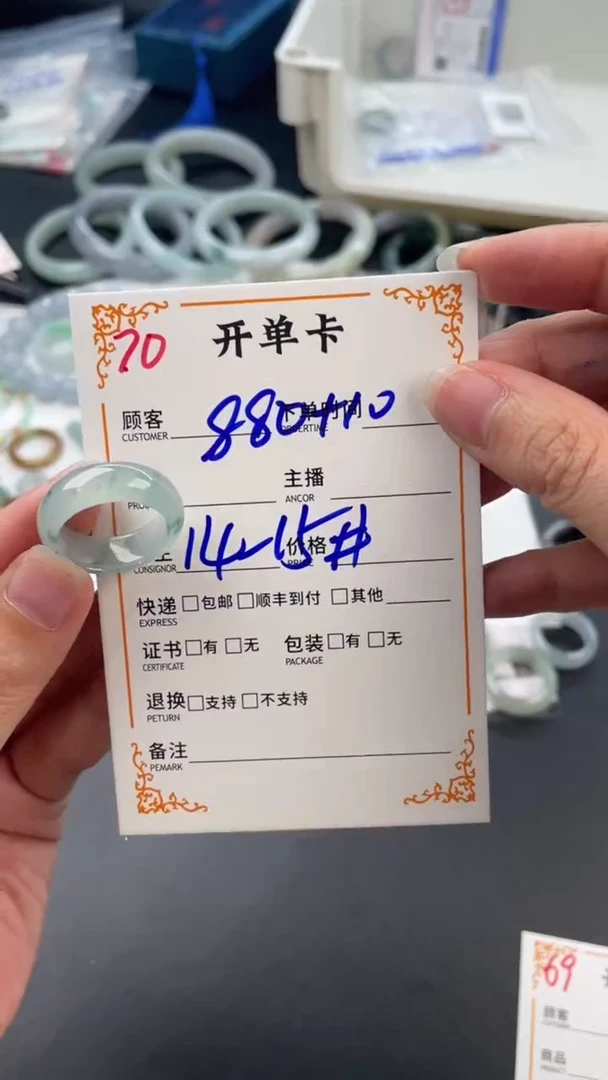 70
开单卡
顾客
CUSTOMER
880+110
主播
ANCOR
14-15#
价格
CONSIGNOR
快递 包邮 顺丰到付 其他
EXPRESS
证书 有 无 包装 有 无
CERTIFICATE PACKAGE
退换 支持 不支持
PETURN
备注
PEMARK
69
顾客
商品